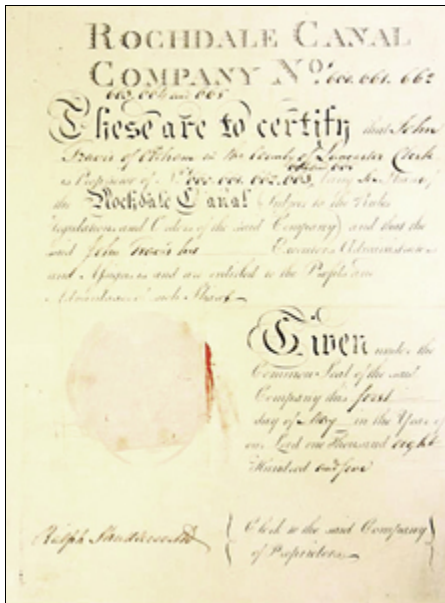 ROCHDALE CANAL
COMPANY No. 660. 661. 662
663, 664 and 665
These are to certify that John
Travis of in the County of Lancaster Clerk
is Proprietor of No. 660, 661, 662, 663, being Shares of
the Rochdale Canal Subject to the Rules
Regulations and Orders of the said Company) and that the
said John Travis his Executors Administrators
and Assigns and are entitled to the Profits and
Advantages of such Shares
Given under the
Common Seal of the said
Company this first
day of May in the Year of
our Lord one Thousand eight
Hundred and five
Ralph
Clerk to the said Company
of Proprietors